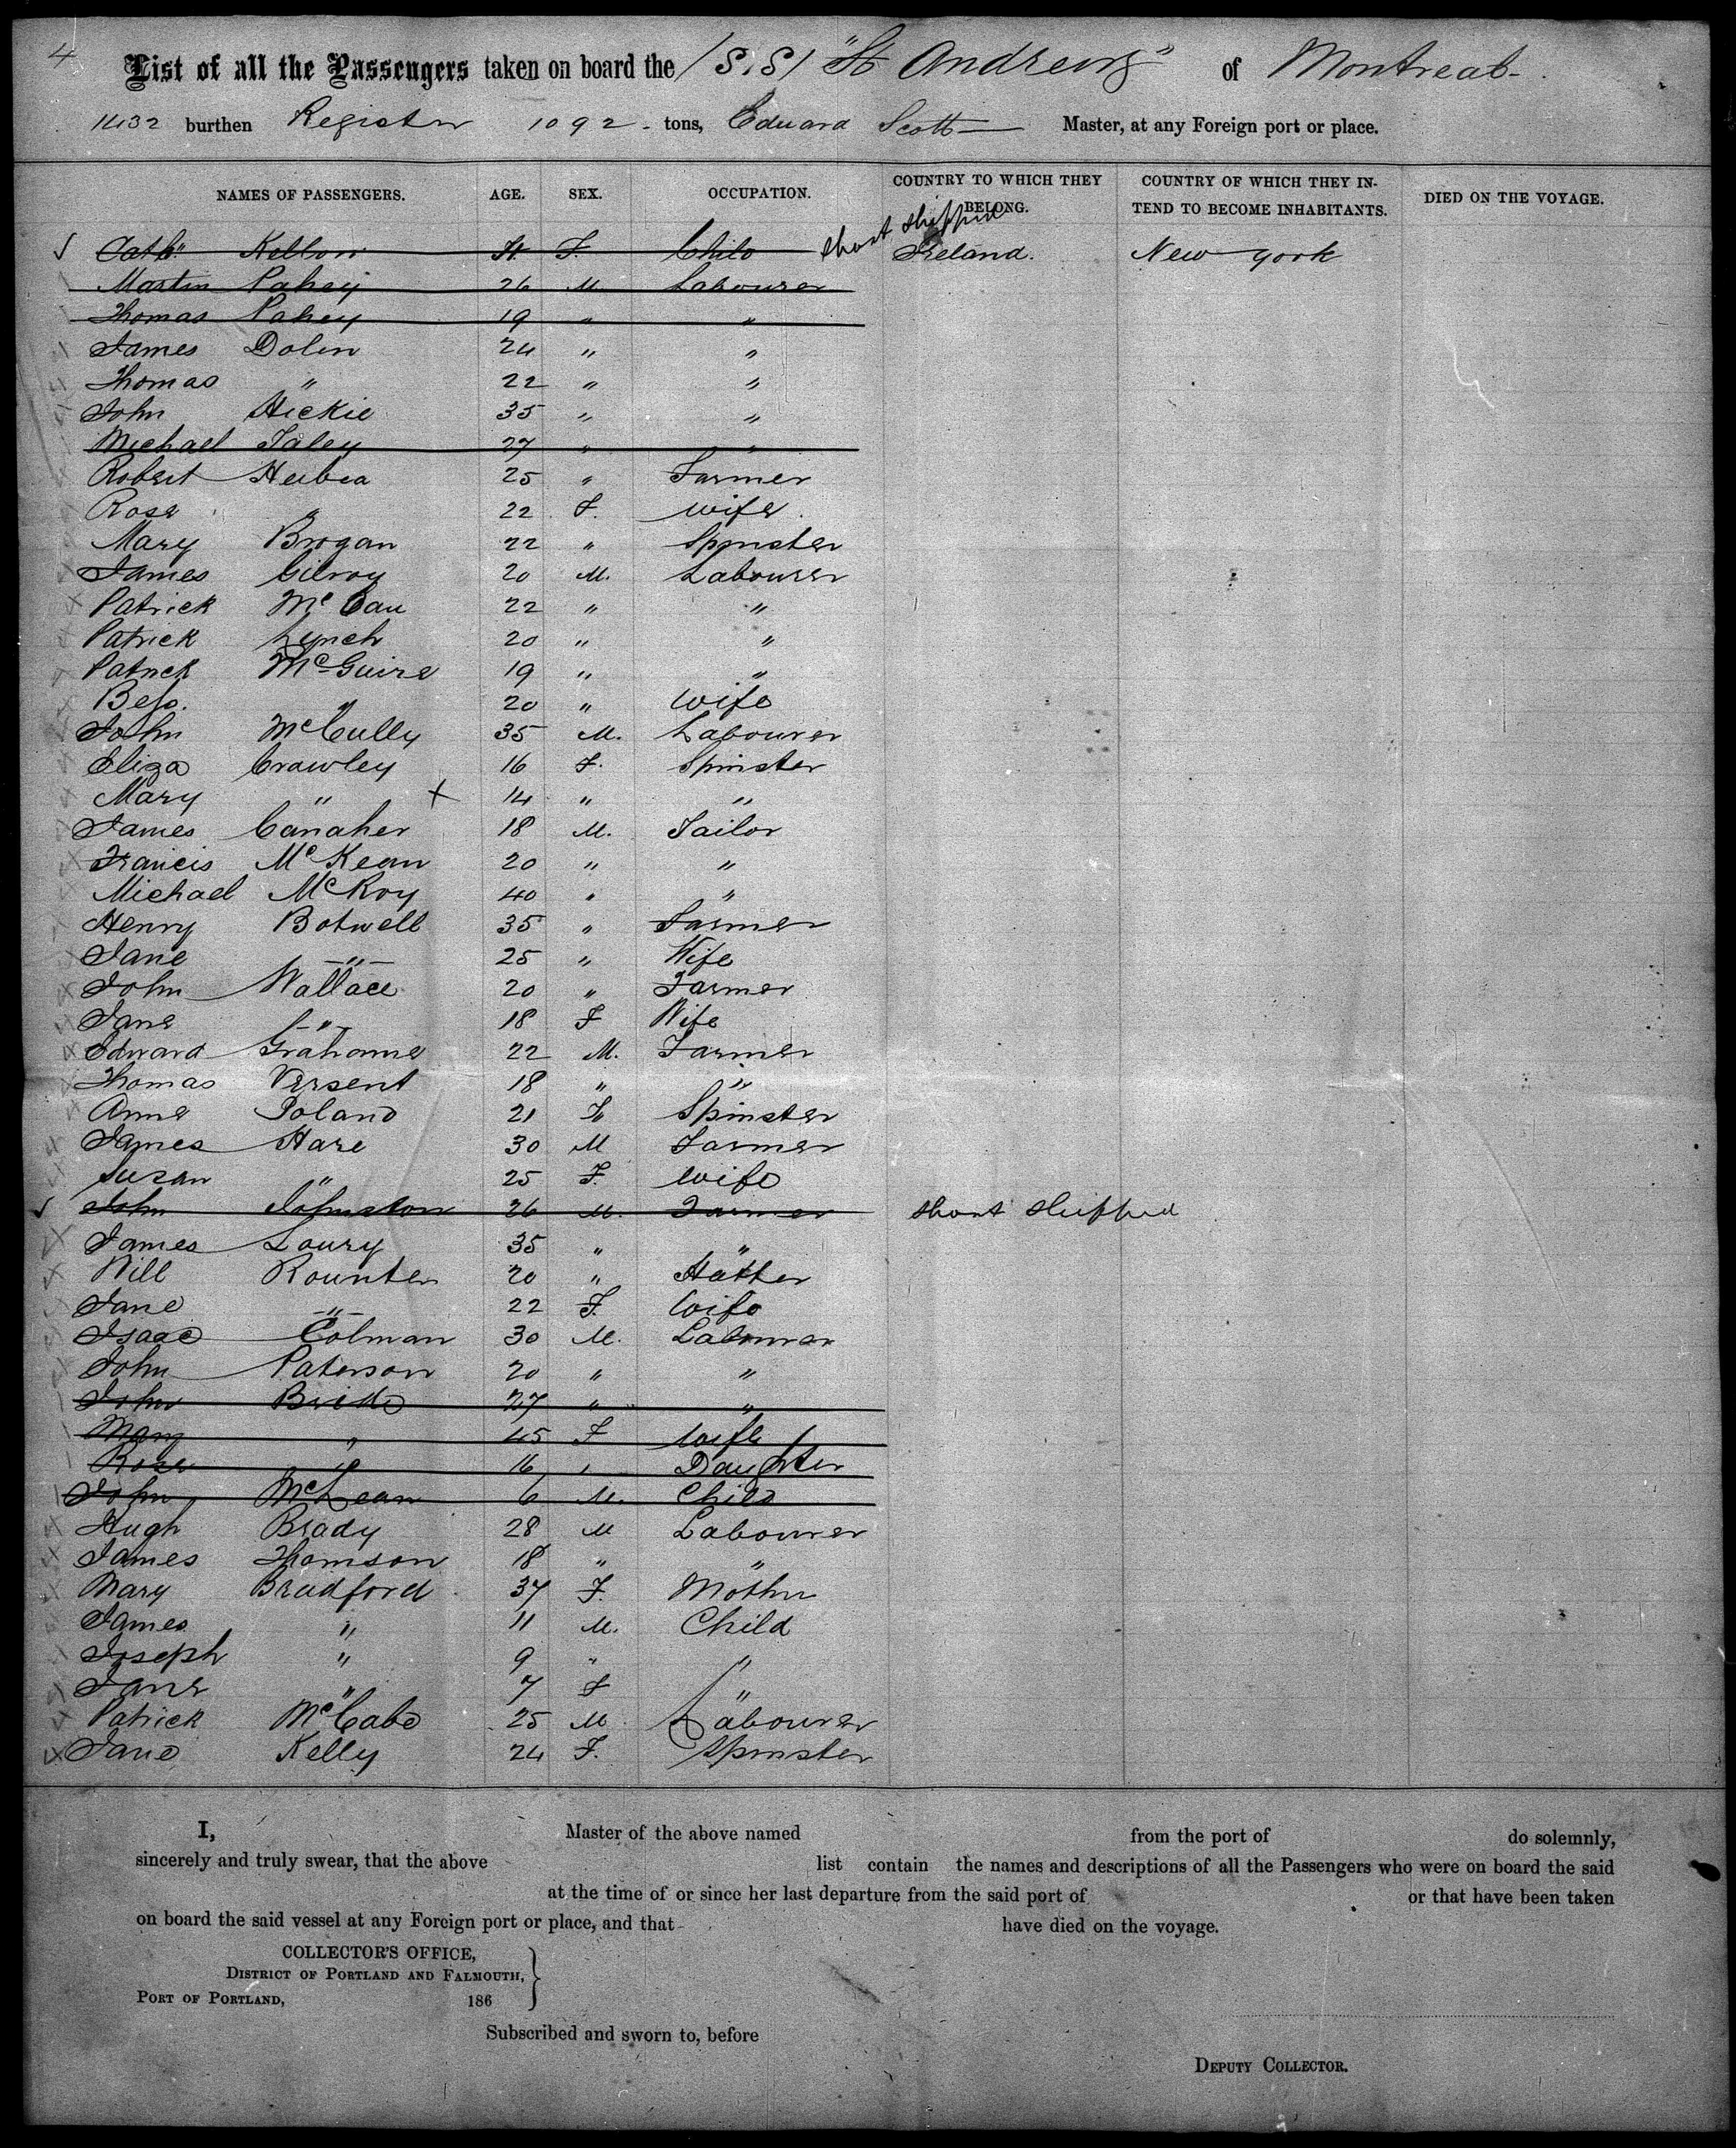 4
List of all the Passengers taken on board the (S.S) "St Andrews" of Montreal
1432 burthen Register 1092 tons, Edward Scott Master, at any Foreign port or place.
NAMES OF PASSENGERS. AGE. SEX. OCCUPATION. COUNTRY TO WHICH THEY BELONG. COUNTRY OF WHICH THEY INTEND TO BECOME INHABITANTS. DIED ON THE VOYAGE.
Cath. F. Child short shipped Ireland. New York
Martin Fahey 26 M. Labourer
Thomas Fahey 19 " "
James Dolen 24 " "
Thomas " 22 " "
John Hickie 35 " "
Michael Faley 27 " "
Robert 25 " Farmer
Rose " 22 F. wife
Mary Brogan 22 " Spinster
James Gilroy 20 M. Labourer
Patrick 22 " "
Patrick Lynch 20 " "
Patrick McGuire 19 " "
Bess. " 20 " wife
John McCully 35 M. Labourer
Eliza Crawley 16 F. Spinster
Mary " X 14 " "
James Canaher 18 M. Tailor
Francis McKean 20 " "
Michael McRoy 40 " "
Henry Botwell 35 " Farmer
Jane " 25 " Wife
John Wallace 20 " Farmer
Jane " 18 F Wife
Edward Grahame 22 M. Farmer
Thomas Versent 18 " "
Anne Poland 21 F. Spinster
James Hare 30 M Farmer
Susan " 25 F. wife
John Johnston 26 M. Farmer short shipped
James Loury 35 " "
Will Rounten 20 " Hatter
Jane " 22 F. Wife
Isaac Colman 30 M. Labourer
John Paterson 20 " "
John Bride 27 " "
Mary " 45 F Wife
Rose " 16 " Daughter
John McLean 6 M. Child
Hugh Brady 28 M Labourer
James Thomson 18 " "
Mary Bradford 37 F. Mother
James " 11 M. Child
Joseph " 9 " "
Jane " 7 F "
Patrick McCabe 25 M Labourer
Jane Kelly 24 F. Spinster
I, Master of the above named from the port of do solemnly,
sincerely and truly swear, that the above list contain the names and descriptions of all the Passengers who were on board the said
at the time of or since her last departure from the said port of or that have been taken
on board the said vessel at any Foreign port or place, and that have died on the voyage.
COLLECTOR'S OFFICE,
DISTRICT OF PORTLAND AND FALMOUTH,
PORT OF PORTLAND, 186
Subscribed and sworn to, before
DEPUTY COLLECTOR.